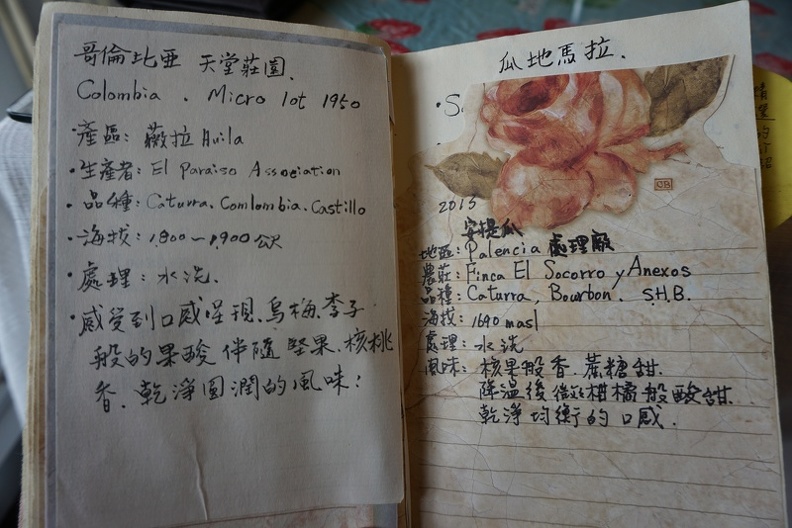 哥倫比亞 天堂莊園.
Colombia . Micro lot 1950
·產區: 薇拉 Huila
·生產者: El Paraiso Association
·品種: Caturra. Comlombia. Castillo
·海拔: 1,800~1,900公尺
·處理: 水洗.
·感受到口感呈現.烏梅.李子
般的果酸 伴隨 堅果.核桃
香.乾淨圓潤的風味!
瓜地馬拉.
2015
安提瓜
地區: Palencia 處理廠
農莊: Finca El Socorro y Anexos
品種: Caturra, Bourbon. S.H.B.
海拔: 1690 masl
處理: 水洗
風味: 核果般香.蔗糖甜.
降溫後 柑橘般酸甜.
乾淨均衡的口感.